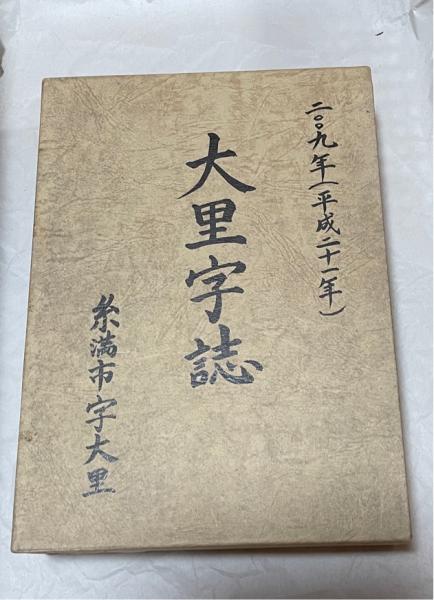 二〇〇九年(平成二十一年)
大里字誌
糸満市字大里